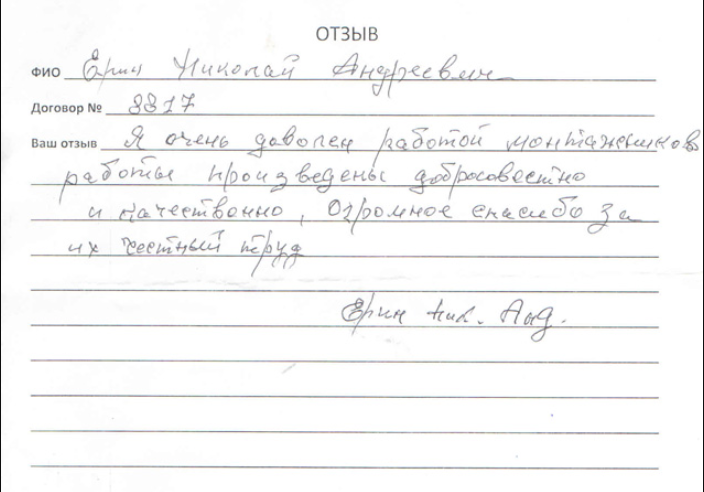 ОТЗЫВ
ФИО Ёрин Николай Андреевич
Договор № 8817
Ваш отзыв Я очень доволен работой монтажников
работы произведены добросовестно
и качественно, Огромное спасибо за
их честный труд
Ёрин Ник. Анд.